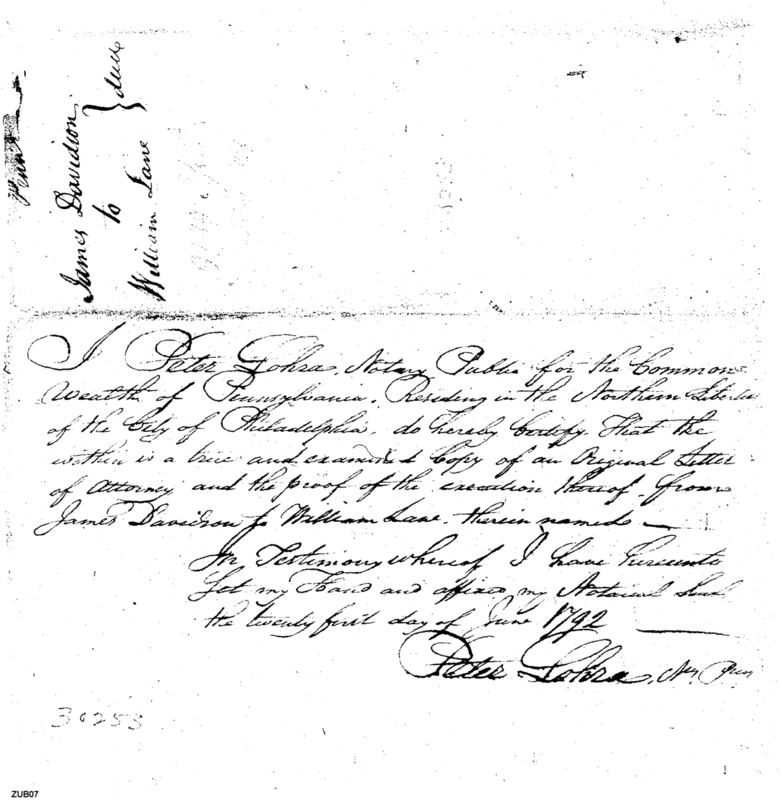 James Davidson
to
William Lane
I Peter Lohra, Notary Public for the Common=
Wealth of Pennsylvania, Residing in the Northern Liberties
of the City of Philadelphia, do hereby Certify That the
within is a true and examined Copy of an Original Letter
of Attorney and the proof of the execution thereof from
James Davidson to William Lane, therein named
In Testimony whereof I have hereunto
Set my Hand and affixed my Notarial Seal
the twenty first day of June 1792
Peter Lohra,
30253
ZUB07